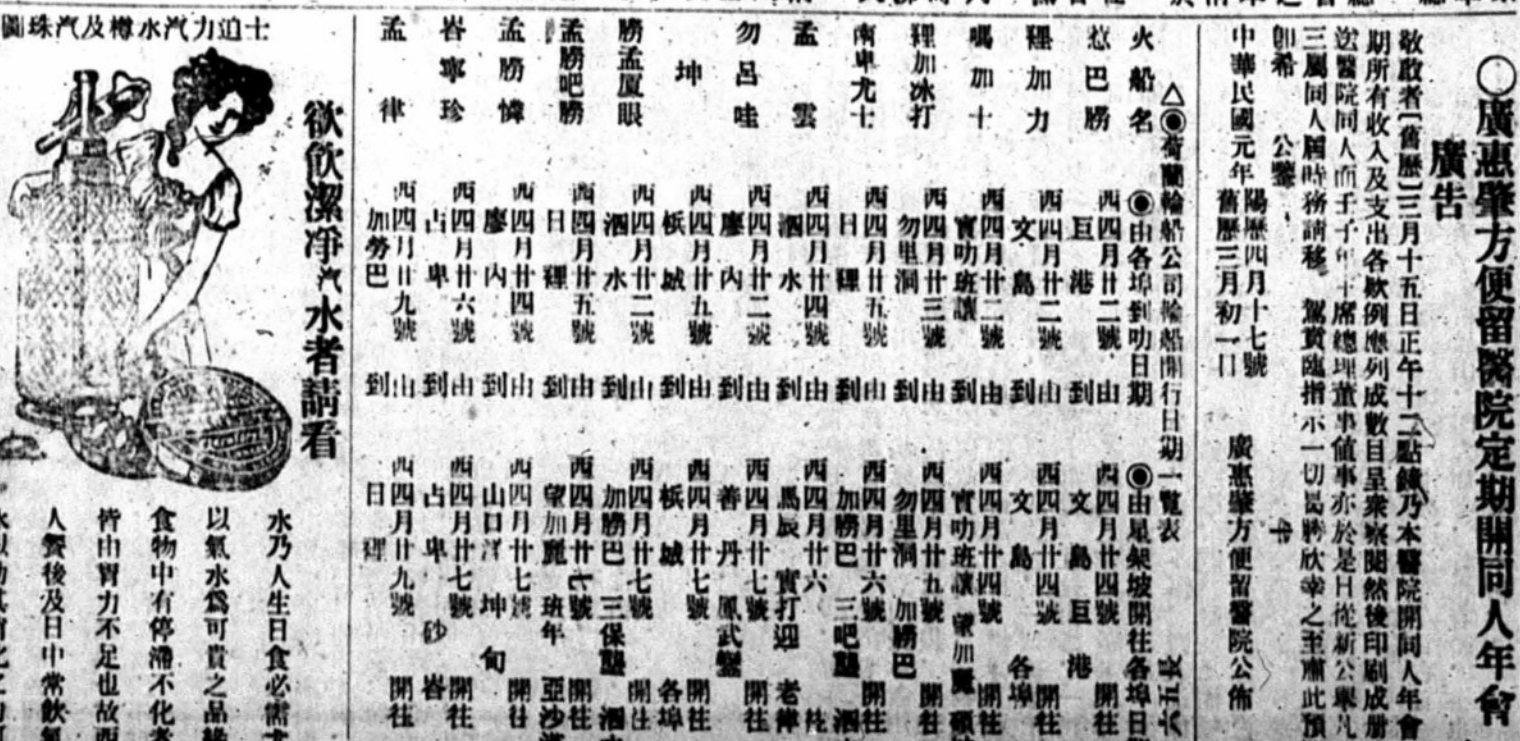 ○廣惠肇方便留醫院定期開同人年會
廣告
敬啟者〔舊歷〕三月十五日正午十二點鐘乃本醫院開同人年會
期所有收入及支出各欵例應列成數目呈衆察閱然後印刷成册
送醫院同人而壬子年主席總理董事值事亦於是日從新公舉凡
三屬同人屆時務請移　駕賁臨指示一切曷勝欣幸之至肅此預
卸希　公鑒
中華民國元年
陽歷四月十七號
舊歷三月初一日
廣惠肇方便留醫院公佈
△◉荷蘭輪船公司輪船開行日期一覽表
火船名　◉由各埠到叻日期　◉由星架坡開往各埠日
巴勝　西四月廿二號由巨港到　西四月廿四號文島巨港開往
裡加力　西四月廿二號由文島到　西四月廿四號文島各埠開往
嗎加士　西四月廿二號由實叻班讓到　西四月廿四號實叻班讓　望加麗開往
裡加冰打　西四月廿三號由勿里洞到　西四月廿五號勿里洞　加勝巴開往
南卑尤士　西四月廿五號由日裡到　西四月廿六號加勝巴　三吧壟開往
孟雲　西四月廿四號由泗水到　西四月廿六馬辰　實打迎　老律
勿呂哇　西四月廿二號由廖內到　西四月廿七號善丹　鳳武鑒開往
坤　西四月廿五號由梹城到　西四月廿七號梹城各埠開往
勝孟厦眼　西四月廿二號由泗水到　西四月廿七號加勝巴　三保壟開往
孟勝吧勝　西四月廿五號由日裡到　西四月廿七號望加麗　班年　亞沙開往
孟勝憐　西四月廿四號由廖內到　西四月廿七號山口洋　坤甸開往
峇寧珍　西四月廿六號由占卑到　西四月廿七號占卑　砂峇開往
孟律　西四月廿九號由加勞巴到　西四月廿九號日裡開往
士迫力汽水樽及汽珠圖
欲飲潔凈汽水者請看
水乃人生日食必需
以氣水爲可貴之品
食物中有停滯不化者
皆由胃力不足也故
人餐後及日中常飲氣